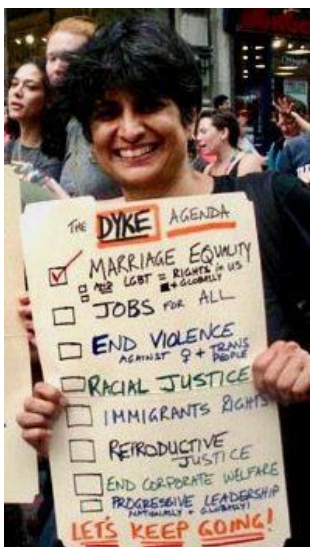 THE DYKE AGENDA
MARRIAGE EQUALITY
LGBT = RIGHTS in US
+ GLOBALLY
JOBS FOR ALL
END VIOLENCE
AGAINST ♀ + TRANS
PEOPLE
RACIAL JUSTICE
IMMIGRANTS RIGHTS
REPRODUCTIVE
JUSTICE
END CORPORATE WELFARE
PROGRESSIVE LEADERSHIP
(NATIONALLY + GLOBALLY)
LET'S KEEP GOING!